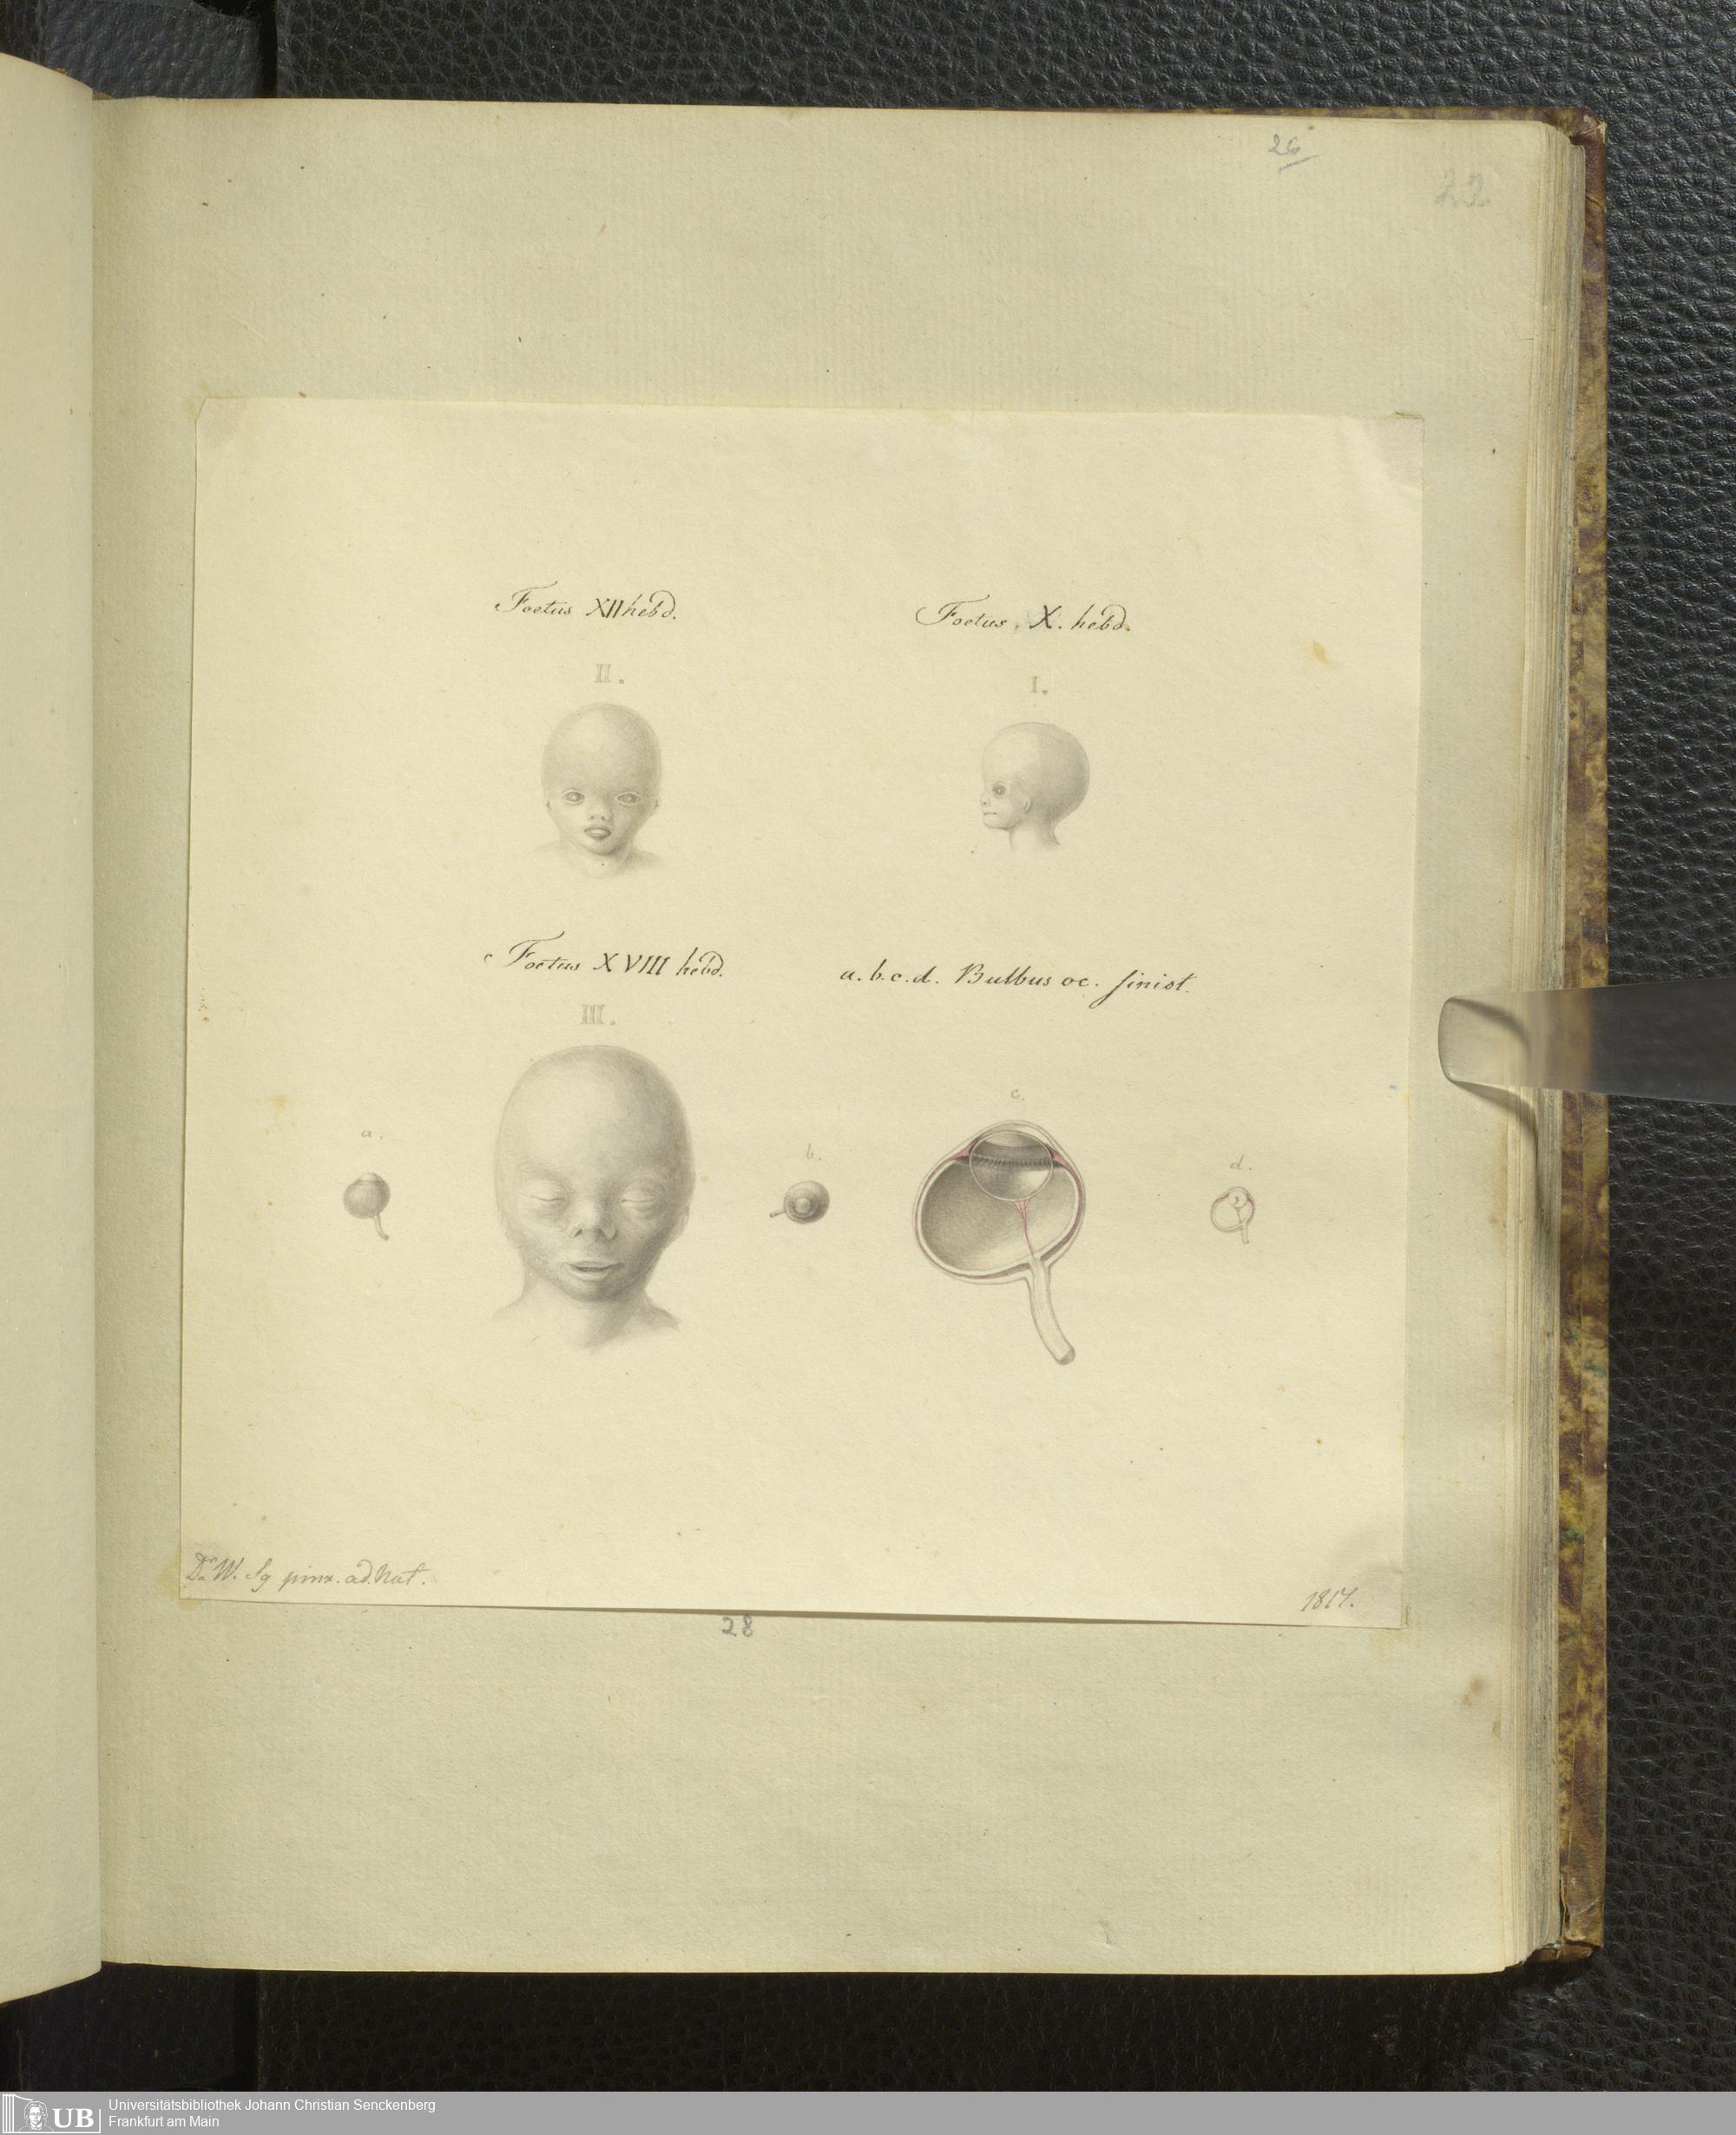 26
22
Foetus XII hebd.
Foetus. X. hebd.
II.
I.
Foetus XVIII hebd.
a. b. c. d. Bulbus oc. sinist.
III.
c.
a.
b.
d.
Dr. W. Sg pinx. ad. Nat.
1817.
28
UB
Universitätsbibliothek Johann Christian Senckenberg
Frankfurt am Main